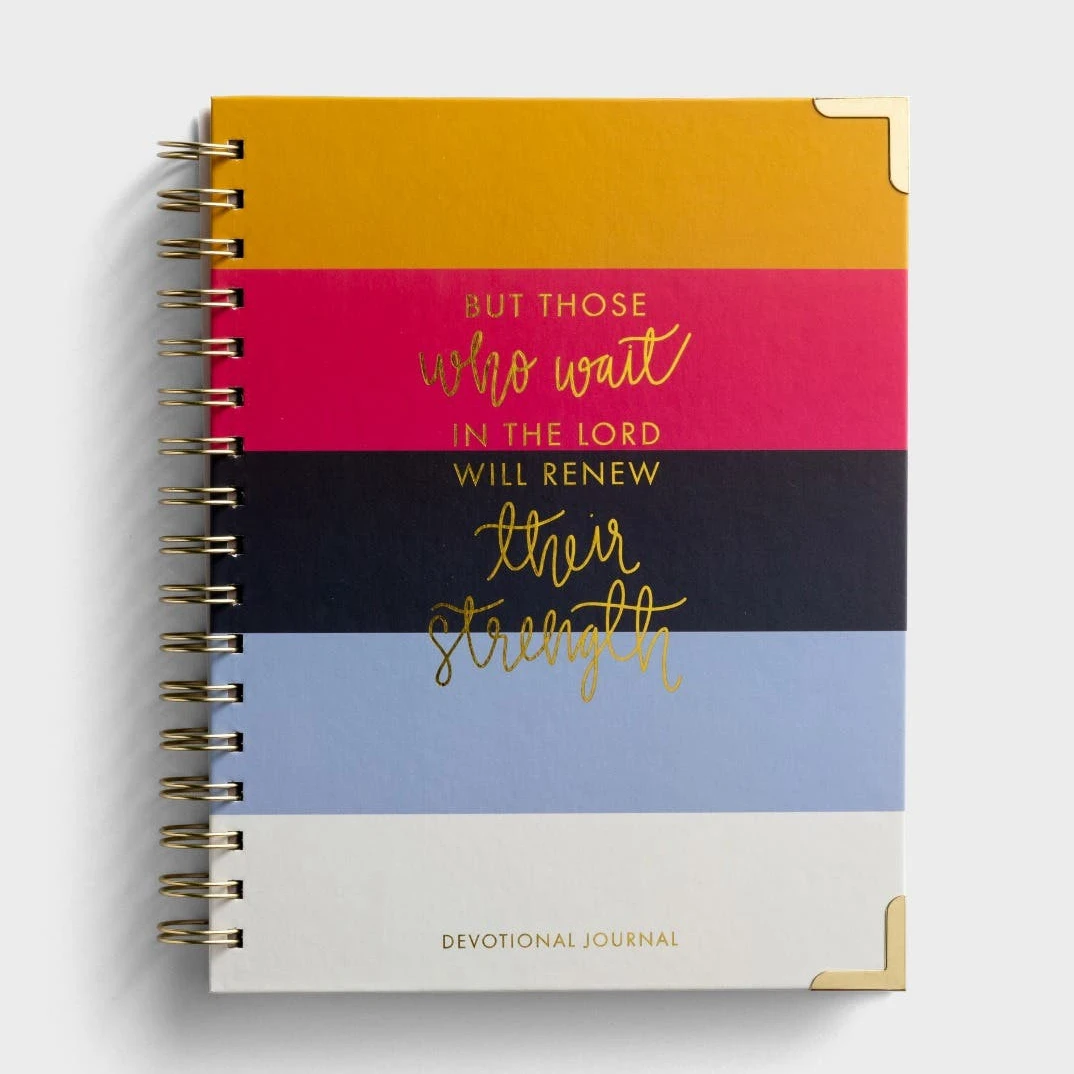 BUT THOSE
who wait
IN THE LORD
WILL RENEW
their
strength
DEVOTIONAL JOURNAL